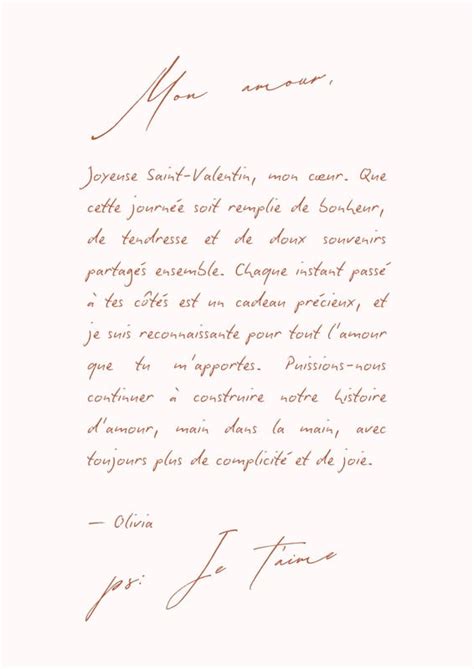 Mon amour,
Joyeuse Saint-Valentin, mon cœur. Que
cette journée soit remplie de bonheur,
de tendresse et de doux souvenirs
partagés ensemble. Chaque instant passé
à tes côtés est un cadeau précieux, et
je suis reconnaissante pour tout l'amour
que tu m'apportes. Puissions-nous
continuer à construire notre histoire
d'amour, main dans la main, avec
toujours plus de complicité et de joie.
— Olivia
ps: Je t'aime